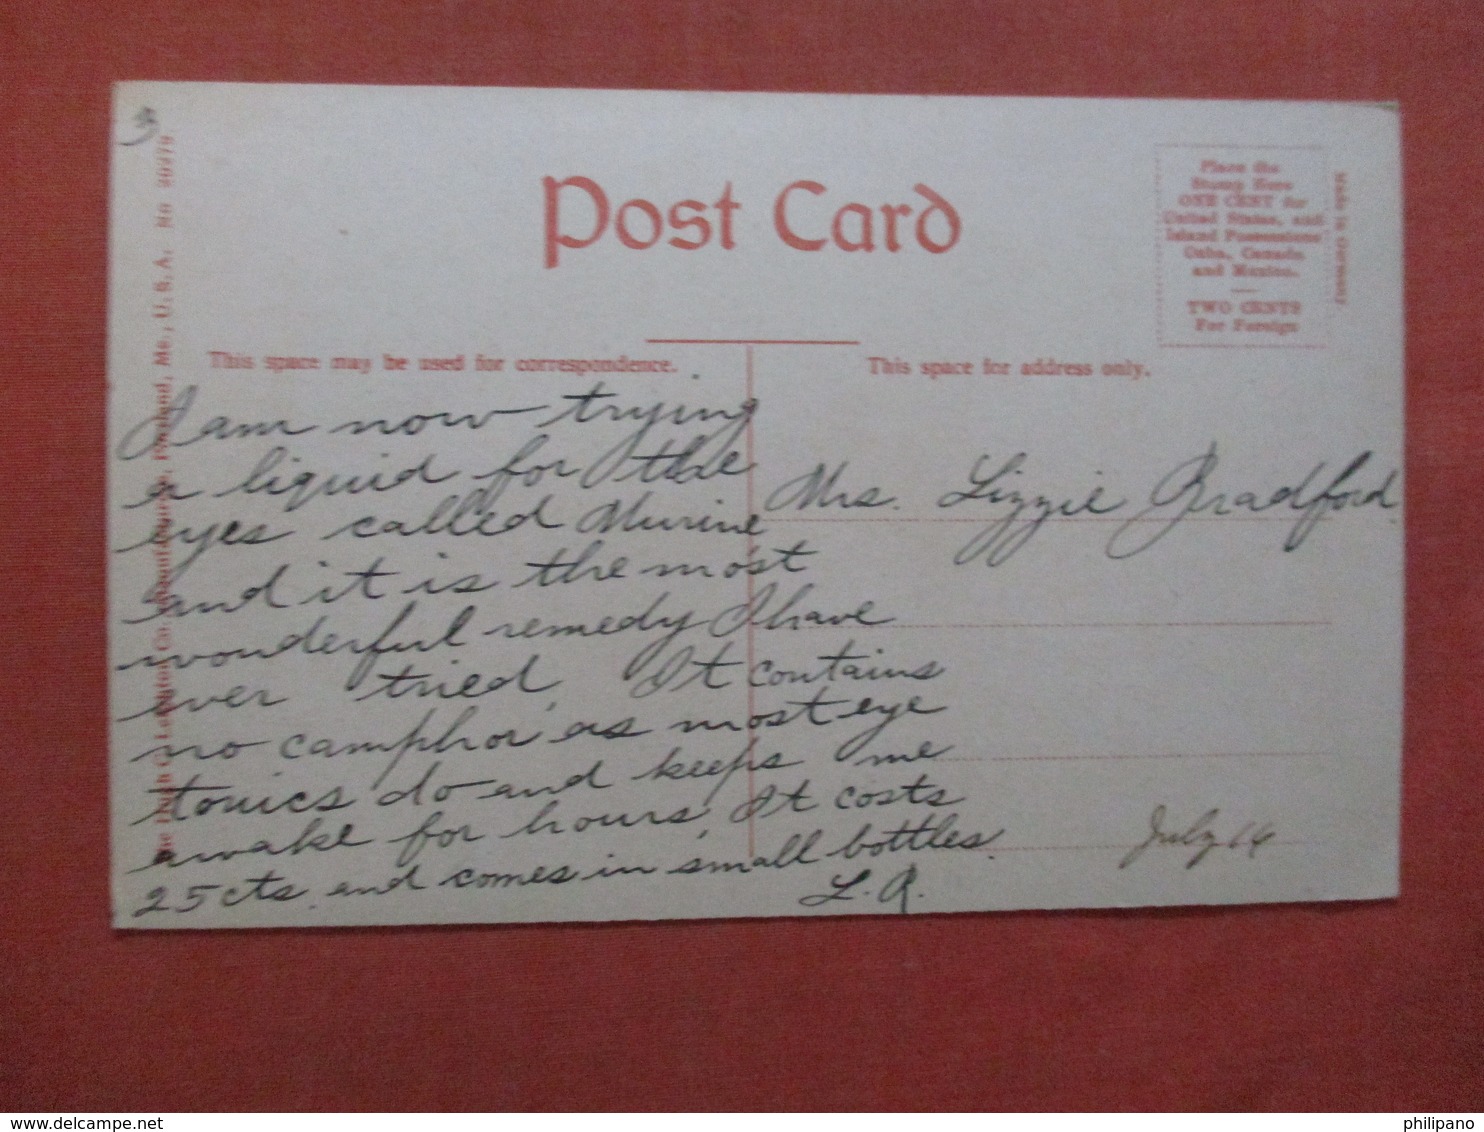 3
Post Card
Place the
Stamp Here
ONE CENT for
United States, and
Island Possessions
Cuba, Canada
and Mexico.
TWO CENTS
For Foreign
Made in Germany
The Hugh C. Leighton Co., Manufacturers, Portland, Me., U.S.A. No
This space may be used for correspondence.
This space for address only.
I am now trying
a liquid for the
eyes called Murine
and it is the most
wonderful remedy I have
ever tried. It contains
no camphor as most eye
tonics do and keeps me
awake for hours. It costs
25 cts. and comes in small bottles.
L. R.
Mrs. Lizzie Bradford
July
delcampe.net
philipano